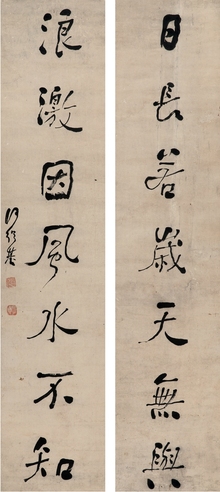 日長若歲天無與
浪激因風水不知
何紹基